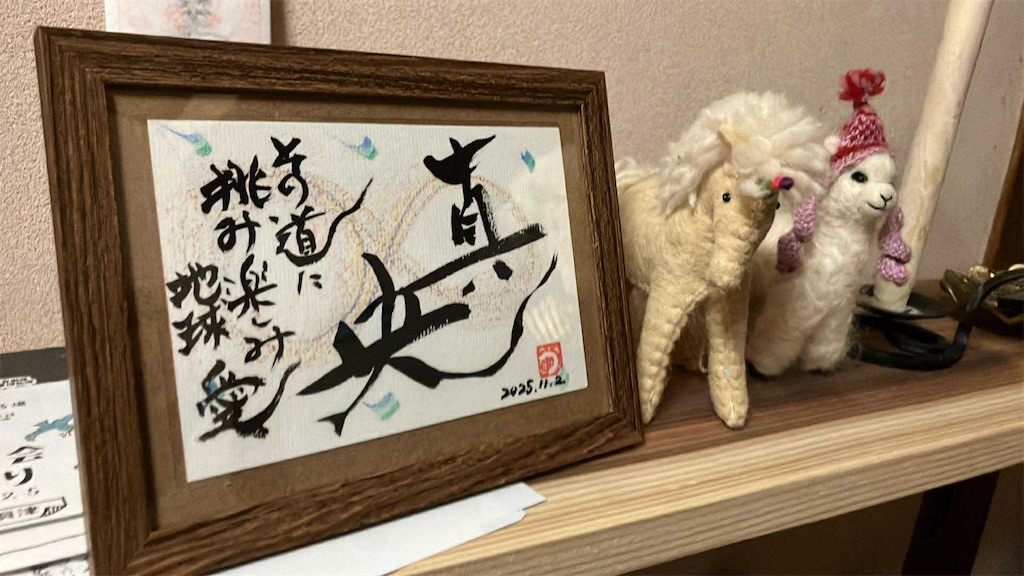 真央
その道に
挑み楽しみ
地球愛
2025.11.2